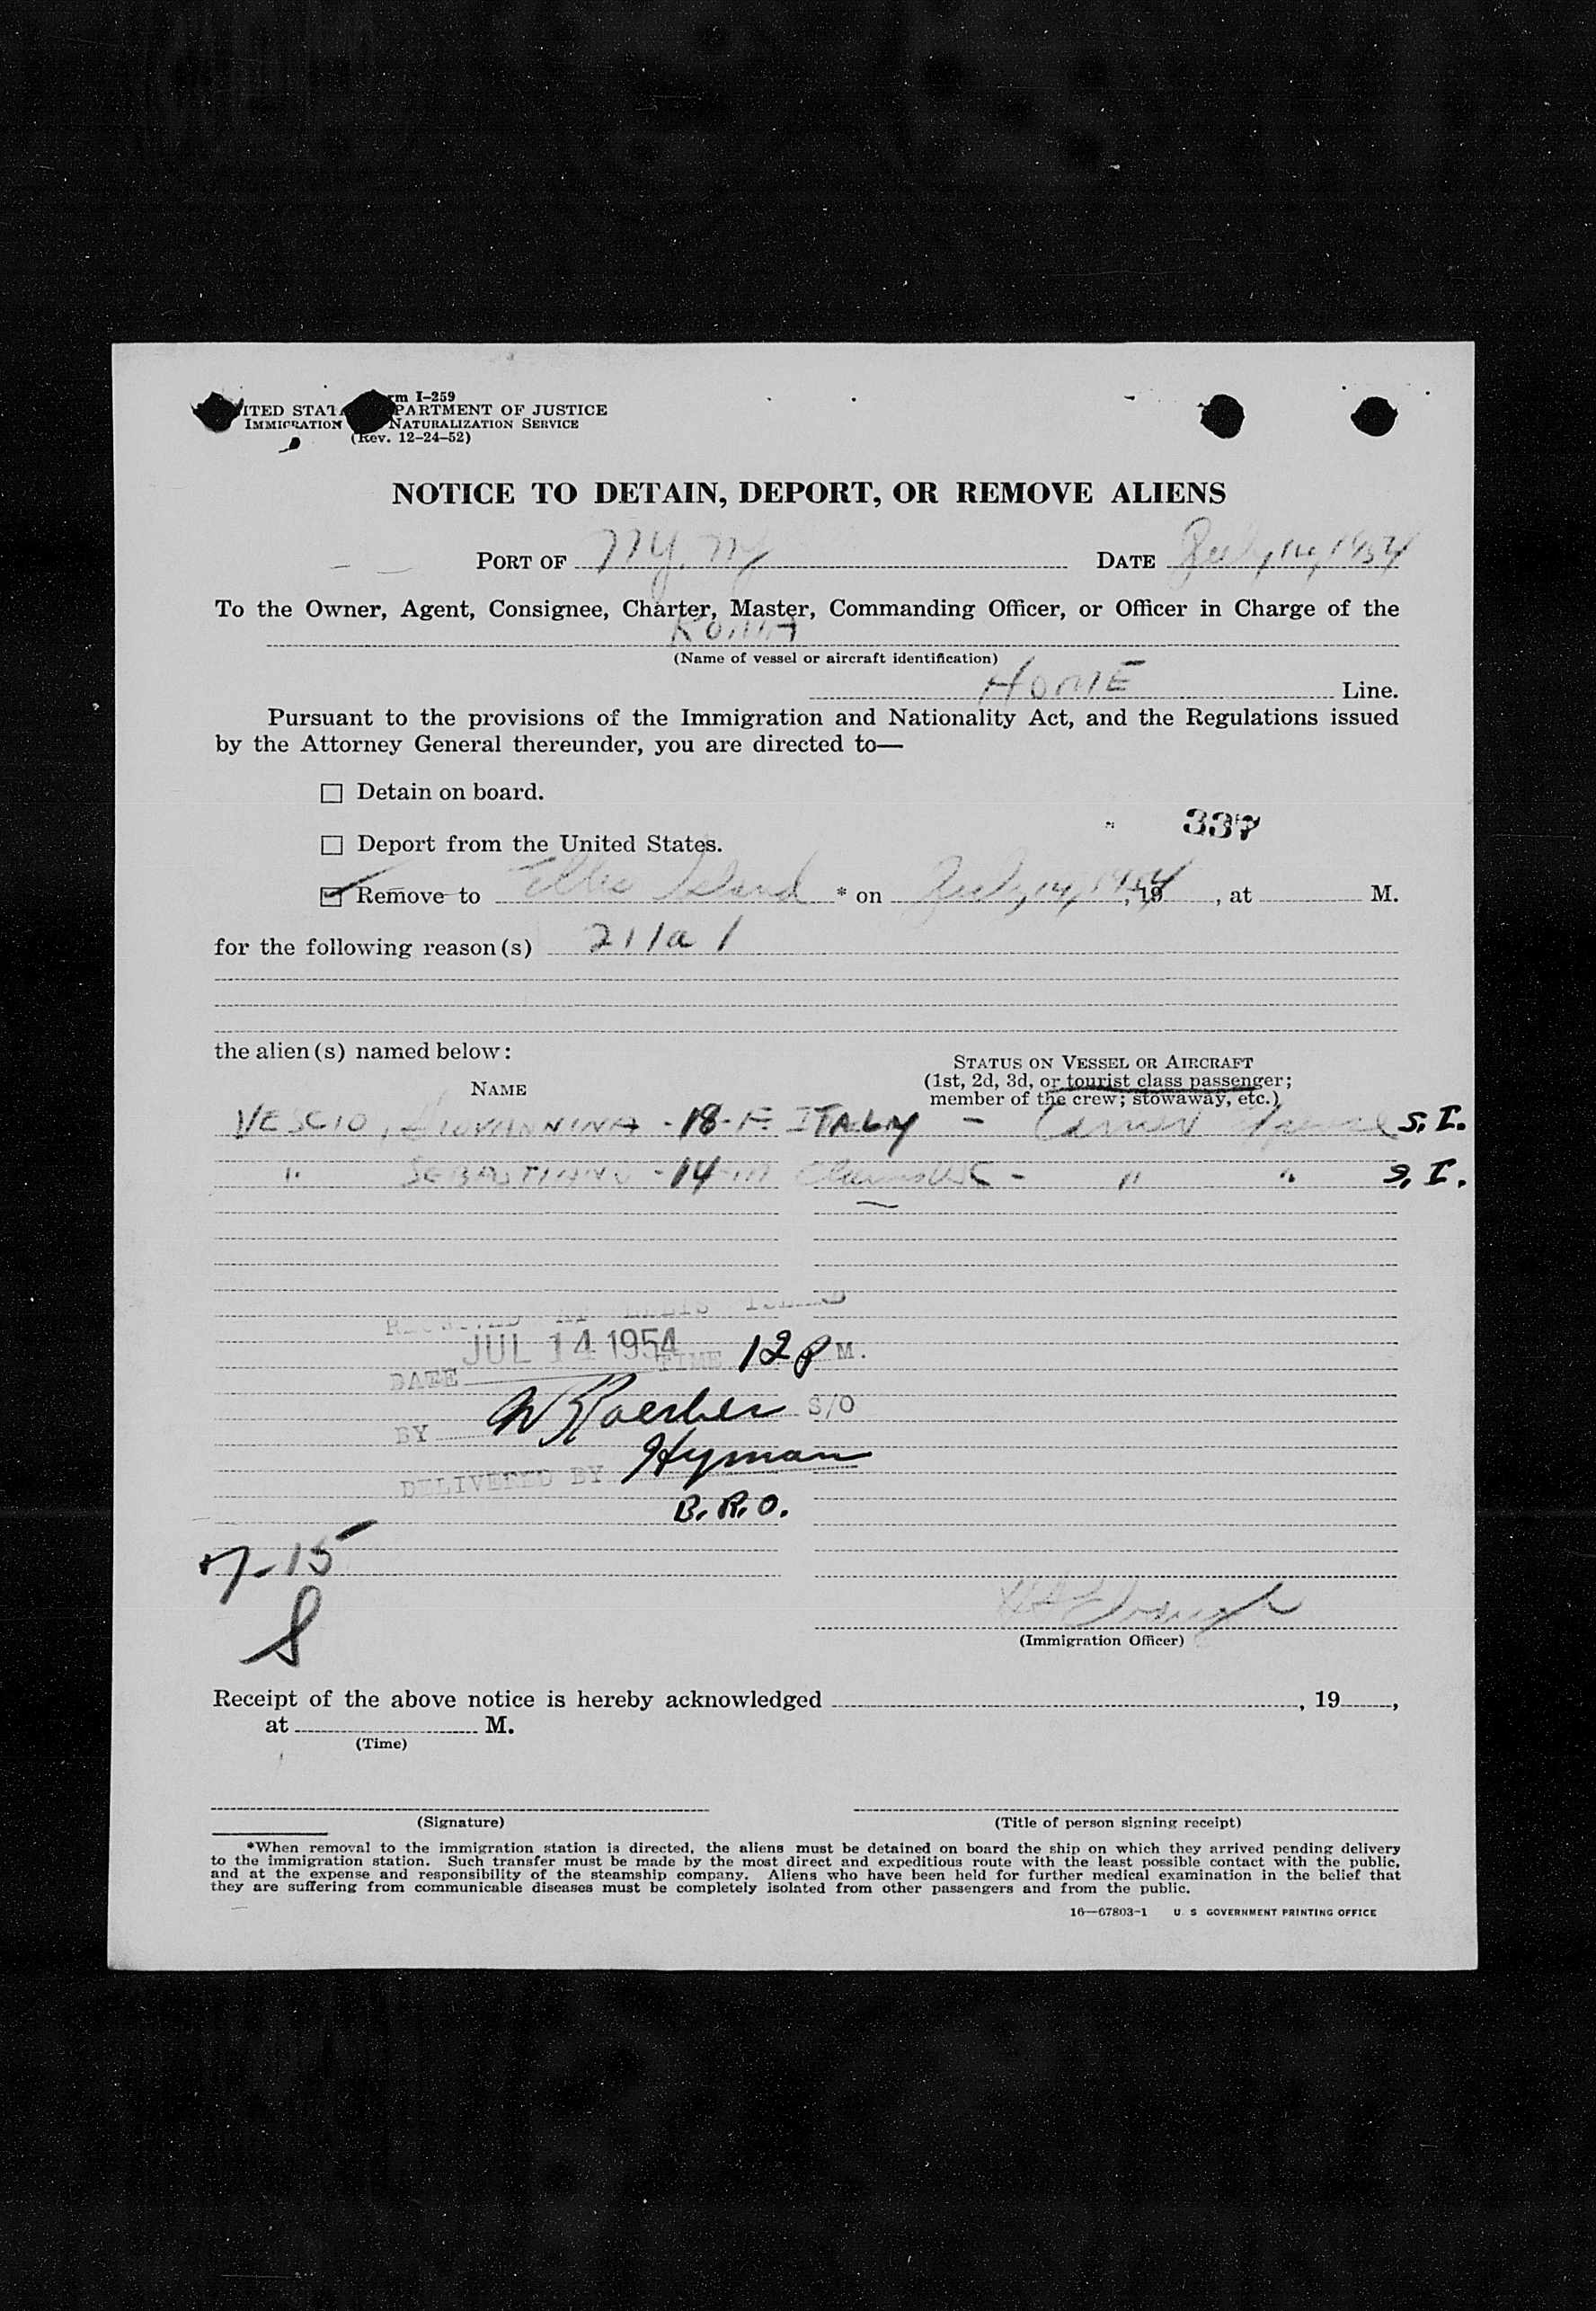 Form I-259
UNITED STATES DEPARTMENT OF JUSTICE
IMMIGRATION NATURALIZATION SERVICE
(Rev. 12-24-52)
NOTICE TO DETAIN, DEPORT, OR REMOVE ALIENS
PORT OF NY. NY DATE July 14, 1954
To the Owner, Agent, Consignee, Charter, Master, Commanding Officer, or Officer in Charge of the
ROMA
(Name of vessel or aircraft identification)
HOME Line.
Pursuant to the provisions of the Immigration and Nationality Act, and the Regulations issued
by the Attorney General thereunder, you are directed to—
☐ Detain on board.
337
☐ Deport from the United States.
☑ Remove to Ellis Island * on July 14, 1954, 19 , at M.
for the following reason(s) 211a1
the alien(s) named below:
STATUS ON VESSEL OR AIRCRAFT
(1st, 2d, 3d, or tourist class passenger;
NAME
member of the crew; stowaway, etc.)
VESCIO, GIOVANNINA - 18 - F. ITALY - Carrier Expense S.I.
" SEBASTIANO - 14 - M Claims USC - " " S.I.
RECEIVED AT ELLIS ISLAND
DATE JUL 14 1954 TIME 12 P M.
BY S/O
DELIVERED BY Hyman
B.R.O.
7-15
(Immigration Officer)
Receipt of the above notice is hereby acknowledged , 19 ,
at M.
(Time)
(Signature) (Title of person signing receipt)
*When removal to the immigration station is directed, the aliens must be detained on board the ship on which they arrived pending delivery
to the immigration station. Such transfer must be made by the most direct and expeditious route with the least possible contact with the public,
and at the expense and responsibility of the steamship company. Aliens who have been held for further medical examination in the belief that
they are suffering from communicable diseases must be completely isolated from other passengers and from the public.
16—67803-1 U. S. GOVERNMENT PRINTING OFFICE